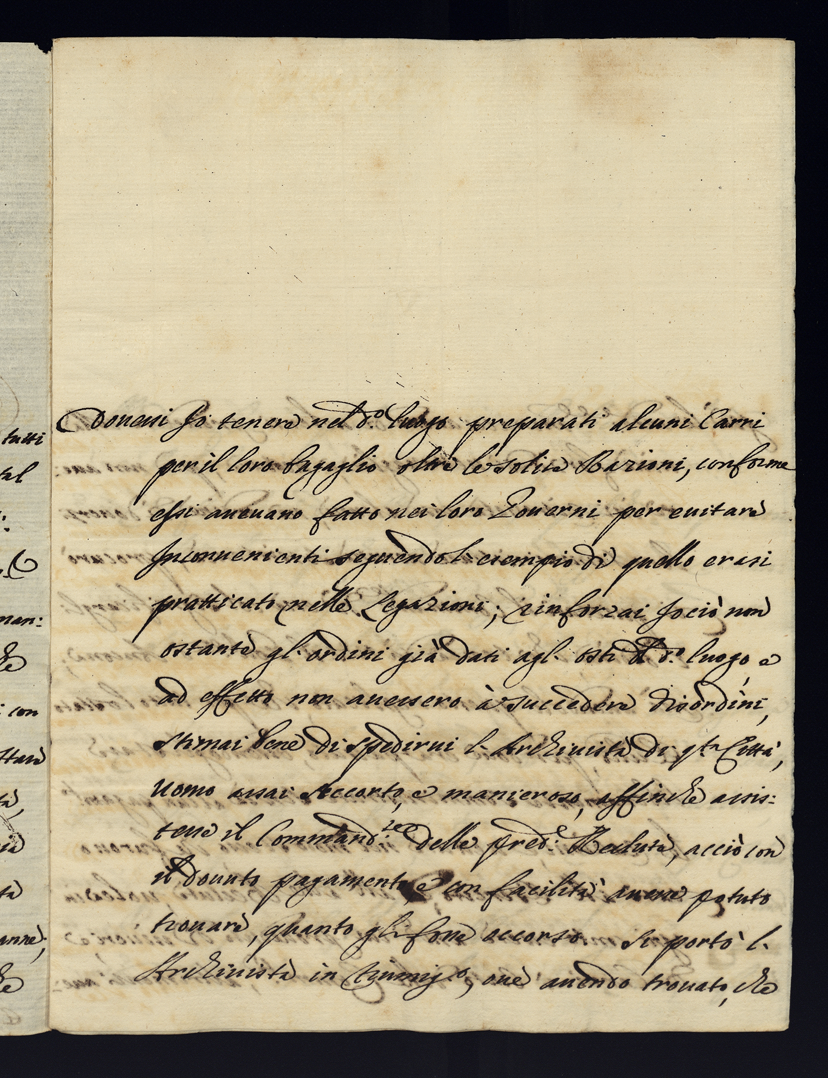 Dovessi Io tenere nel d.º luogo preparati alcuni Carri
per il loro bagaglio oltre le solite Razioni, conforme
essi avevano fatto nei loro Governi per evitare
Inconvenienti seguendo l'esempio di quello erasi
pratticato nelle Legazioni; rinforzai Io ciò non
ostante gl'ordini già dati agl'osti di d.º luogo, e
ad effetto non avessero à succedere disordini,
stimai bene di spedirvi l'Archivista di q.ta Città,
uomo assai accorto, e manieroso, affinche assis:
tesse il Command.te delle pred.e Reclute, acciò con
il dovuto pagamento e con facilità avesse potuto
trovare, quanto gli fosse accorso. Si portò l'
Archivista in, ove avendo trovato, che
tutti
tal
man:
che
i con
che